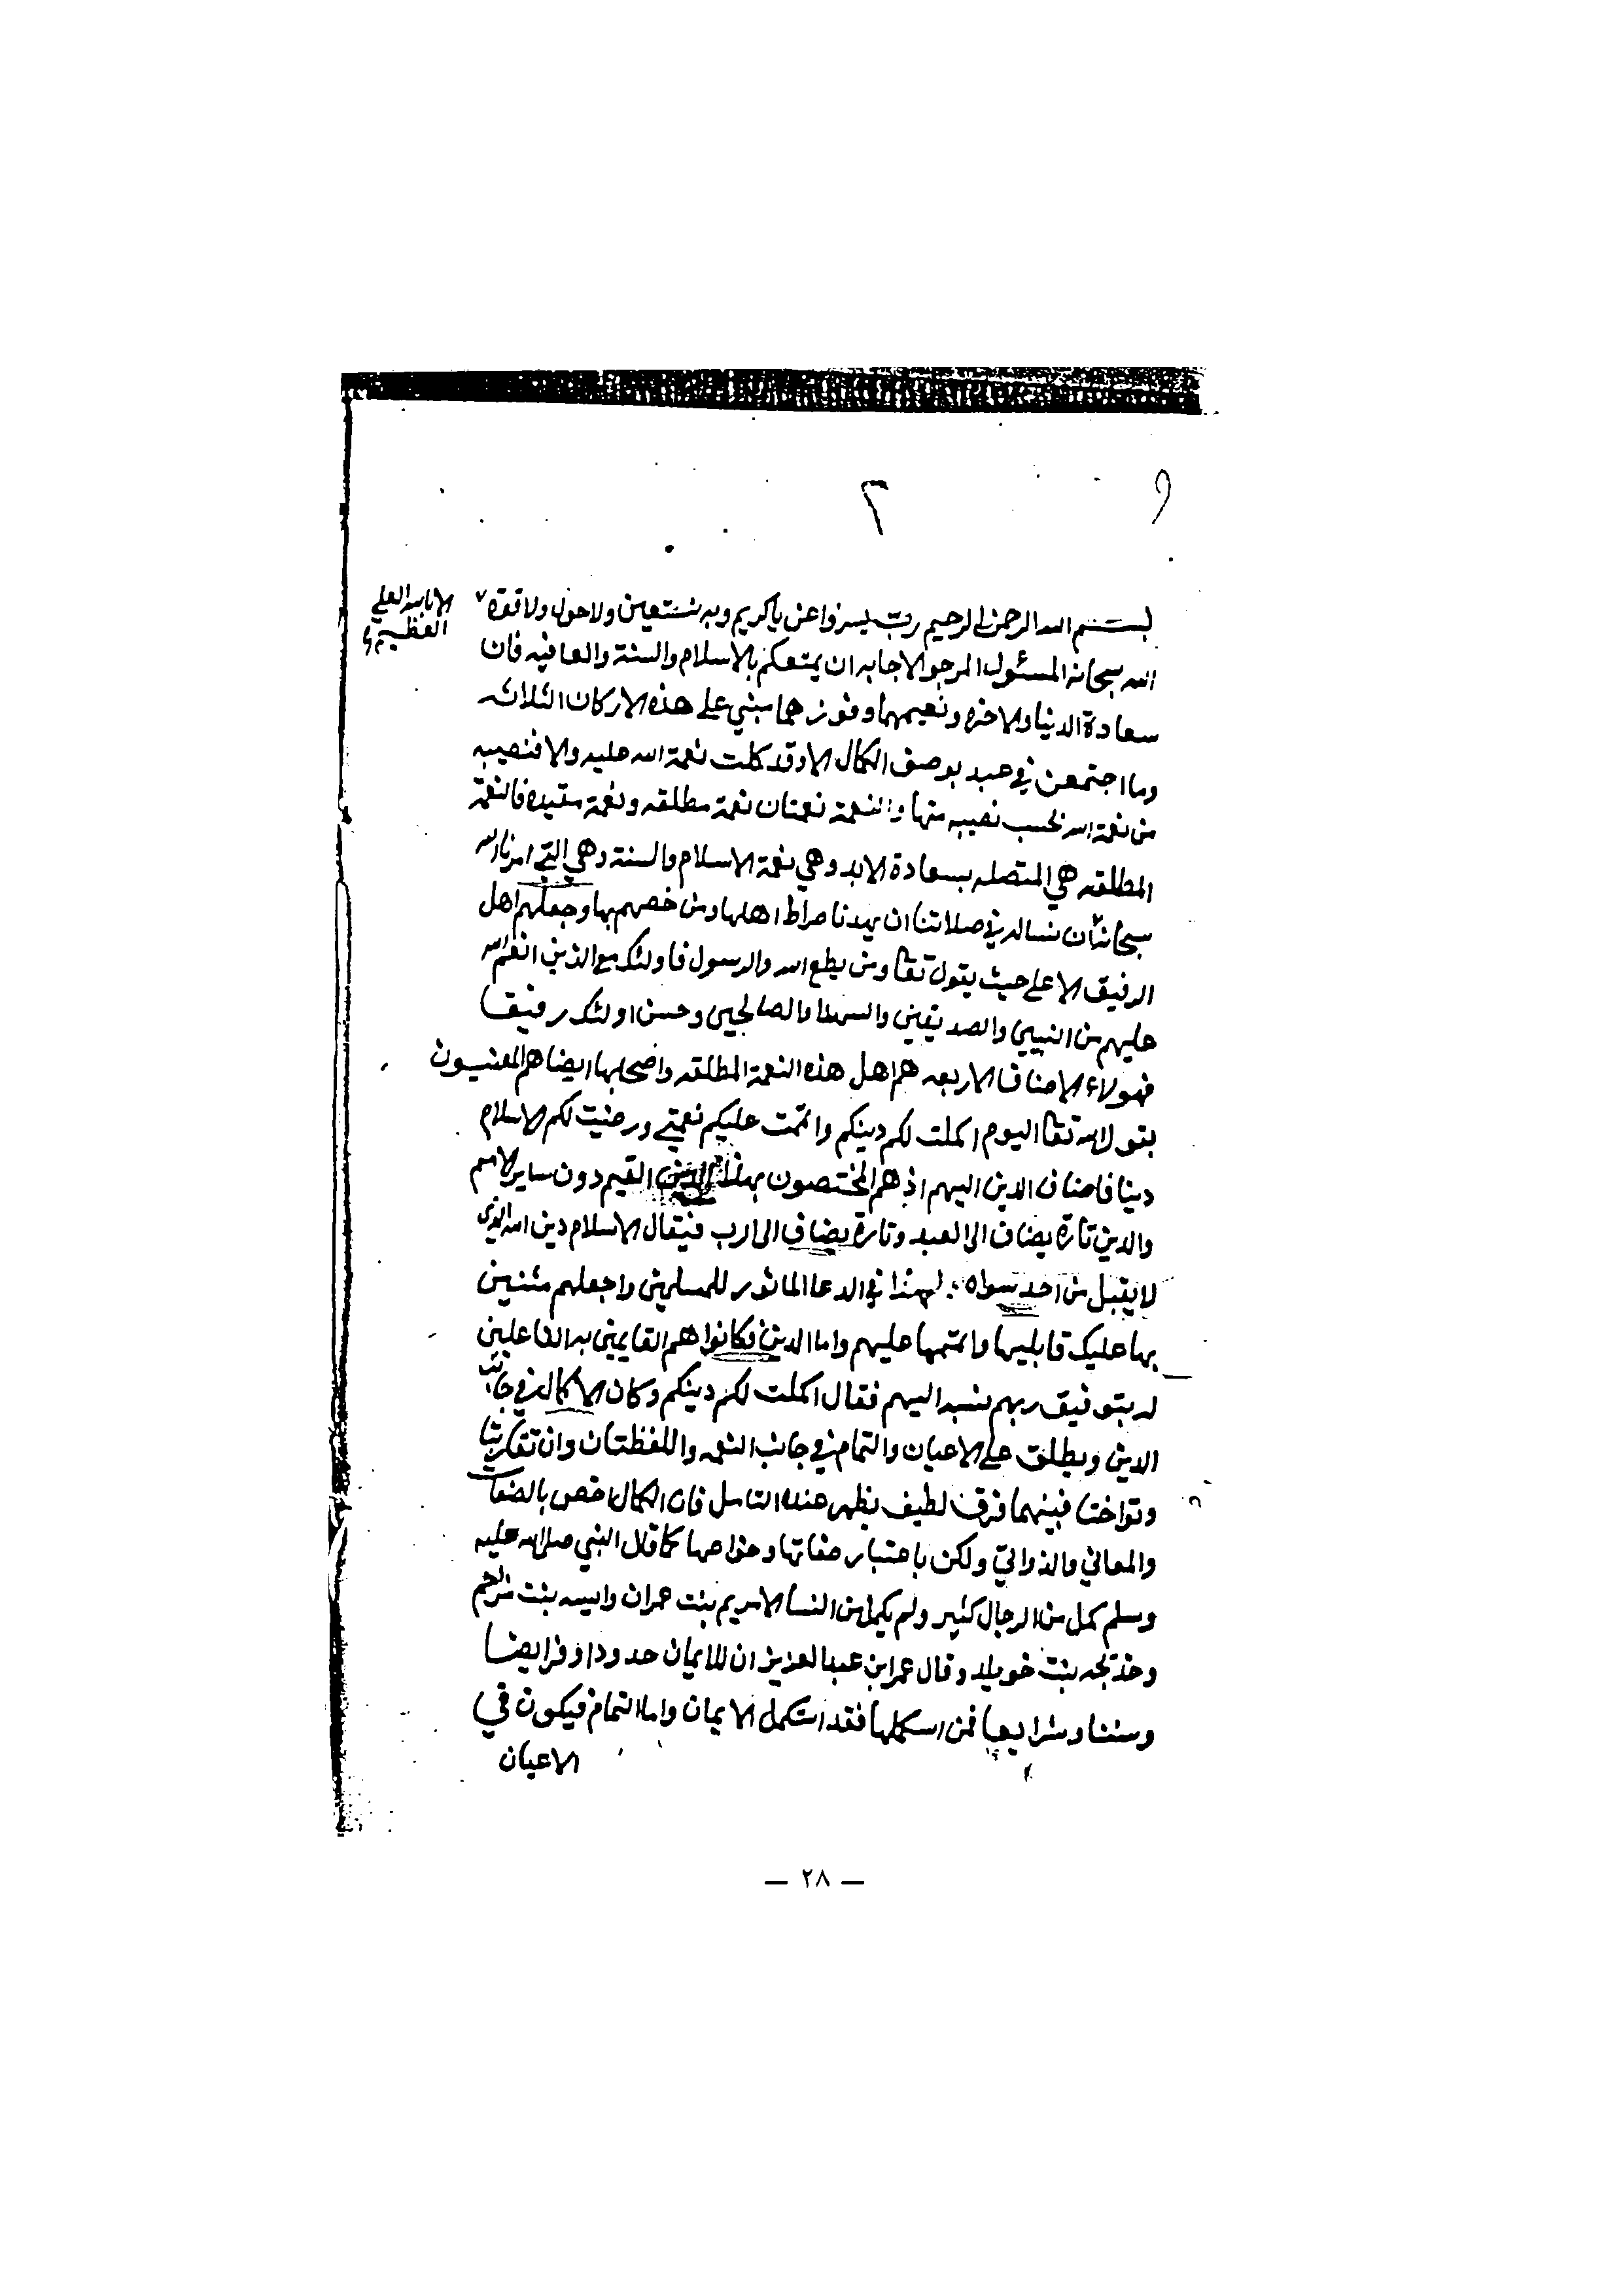 ٢
بسم الله الرحمن الرحيم رب يسر واعن ياكريم وبه نستعين ولاحول ولاقوة
الا بالله العلي
العظيم
الله سبحانه المسئول المرجو الاجابه ان يمتعكم بالاسلام والسنة والعافيه فان
سعادة الدنيا والاخره ونعيمهما وفوزهما مبني على هذه الاركان الثلاثه
وما اجتمعن في عبد بوصف الكمال الا وقد كملت نعمة الله عليه والا فنصيبه
من نعمة الله بحسب نصيبه منها والنعمة نعمتان نعمة مطلقه ونعمة مقيده فالنعمة
المطلقه هي المتصله بسعادة الابد وهي نعمة الاسلام والسنة وهي التي امرنا الله
سبحانه ان نساله في صلاتنا ان يهدنا صراط اهلها ومن خصهم بها وجعلهم اهل
الرفيق الاعلى حيث يقول تعا ومن يطع الله والرسول فاولئك مع الذين انعم الله
عليهم من النبيين والصديقين والشهدا والصالحين وحسن اولئك رفيقا
فهولاء الاصناف الاربعه هم اهل هذه النعمة المطلقه واصحابها ايضا هم المعنيون
بقول الله تعا اليوم اكملت لكم دينكم واتممت عليكم نعمتي ورضيت لكم الاسلام
دينا فاضاف الدين اليهم اذ هم المختصون بهذا الدين القيم دون ساير الامم
والدين تارة يضاف الى العبد وتارة يضاف الى الرب فيقال الاسلام دين الله الذي
لا يقبل من احد سواه ولهذا في الدعا الماثور للمسلمين واجعلهم مثنين
بها عليك قابليها واتممها عليهم واما الدين فكانوا هم القايمين به الفاعلين
له بتوفيق ربهم نسبه اليهم فقال اكملت لكم دينكم وكان الاكمال في جانب
الدين ويطلق على الاعيان والتمام في جانب النعمه واللفظتان وان تقاربتا
وتواختا فبينهما فرق لطيف يظهر عند التامل فان الكمال اخص بالصفات
والمعاني والذواتي ولكن باعتبار صفاتها وخواصها كما قال النبي صلى الله عليه
وسلم كمل من الرجال كثير ولم يكمل من النسا الا مريم بنت عمران واسيه بنت مزاحم
وخديجه بنت خويلد وقال عمر ابن عبد العزيز ان للايمان حدودا وفرايضا
وسننا وشرايعا فمن استكملها فقد استكمل الايمان واما التمام فيكون في
الاعيان
— ٢٨ —